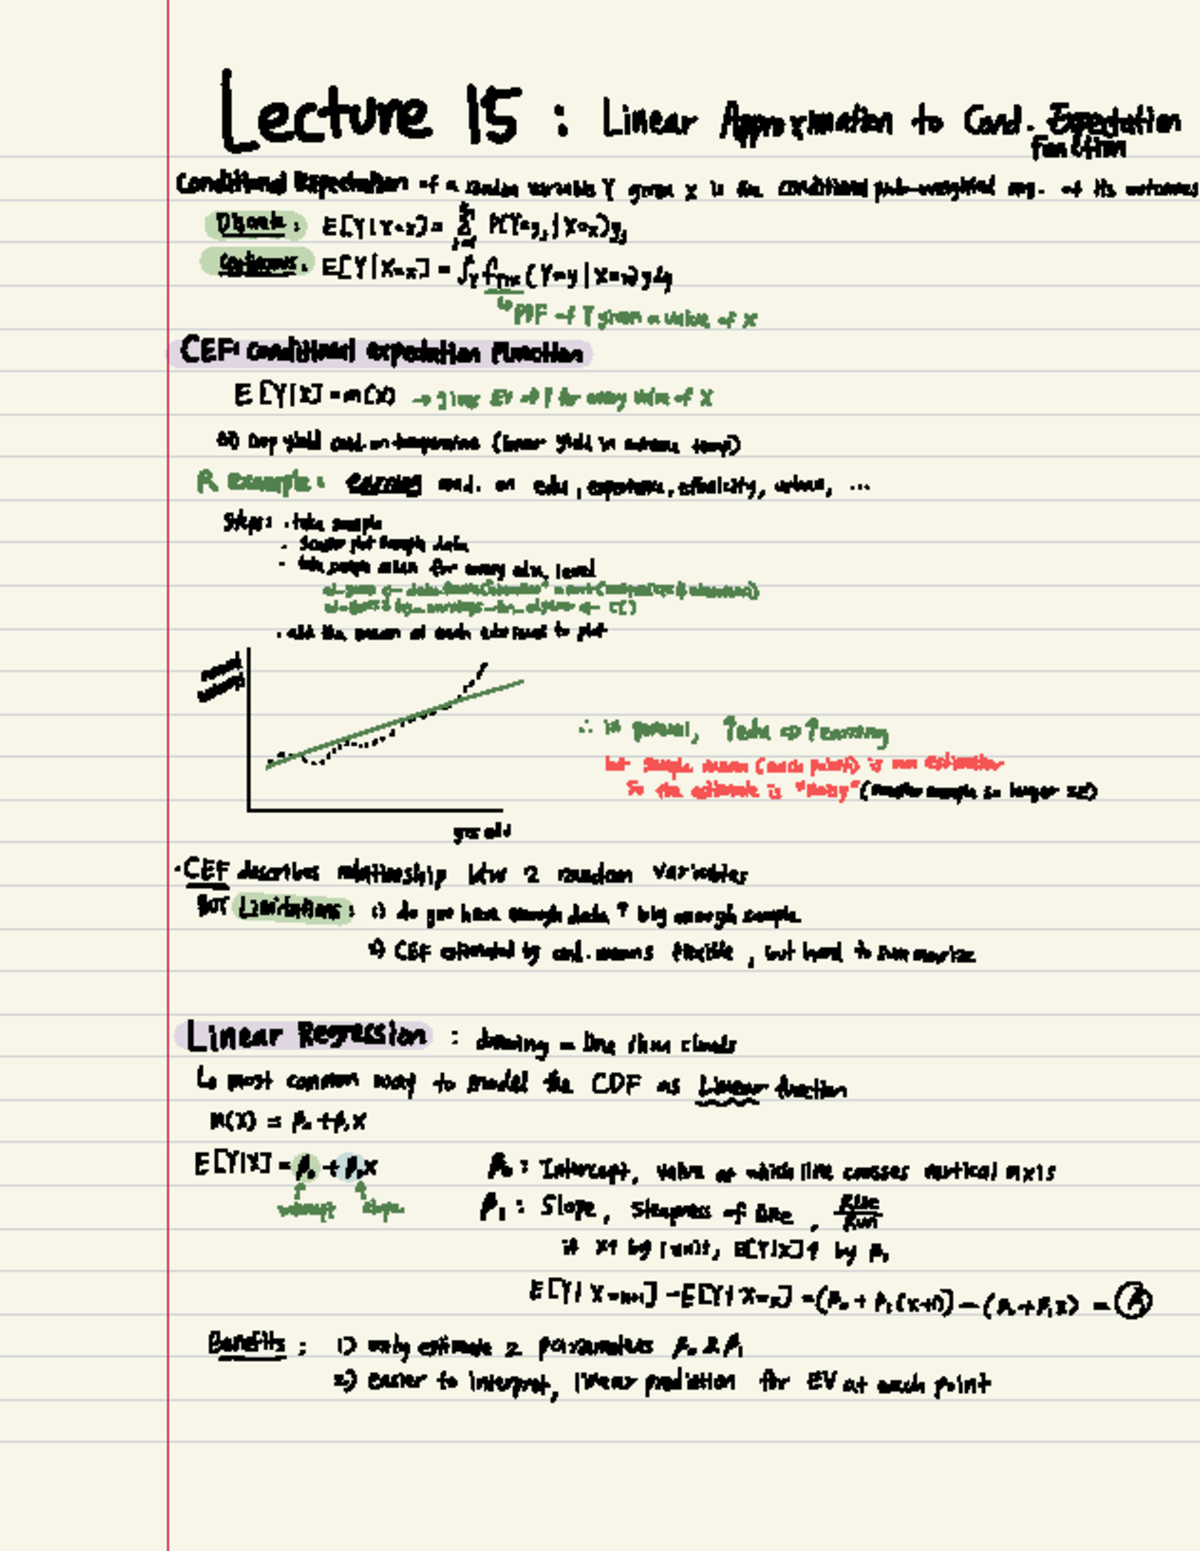 Lecture 15 : Linear Approximation to Cond. Expectation
function
Conditional Expectation of a random variable Y given X is the conditional prob-weighted avg. of its outcomes
Discrete: E[Y|X=x] = Σ P(Y=yⱼ|X=x)yⱼ
Continuous: E[Y|X=x] = ∫ f (Y=y|X=x) y dy
↳ PDF of Y given a value of X
CEF: conditional expectation function
E[Y|X] = m(X) → gives EV of Y for every value of X
crop yield cond. on temperature (lower yield in extreme temp)
R Example: earning cond. on edu, experience, ethnicity, urban, ...
Steps: · take sample
· scatter plot sample data
· take sample mean for every edu. level
· add the mean at each edu level to plot
yrs edu
∴ in general, ↑edu ⇒ ↑earning
but sample mean (each point) is an estimator
so the estimate is "noisy" (smaller sample so larger SE)
· CEF describes relationship btw 2 random variables
BUT Limitations: 1) do you have enough data ? big enough sample
2) CEF estimated by cond. means flexible, but hard to summarize
Linear Regression : drawing a line thru clouds
↳ most common way to model the CDF as linear function
m(X) = β₀ + β₁X
E[Y|X] = β₀ + β₁X
intercept slope
β₀ : Intercept, value at which line crosses vertical axis
β₁ : Slope, steepness of line, Rise/Run
if X↑ by 1 unit, E[Y|X]↑ by β₁
E[Y|X=x+1] - E[Y|X=x] = (β₀ + β₁(x+1)] - (β₀ + β₁x) = β₁
Benefits : 1) only estimate 2 parameters β₀ & β₁
2) easier to interpret, linear prediction for EV at each point